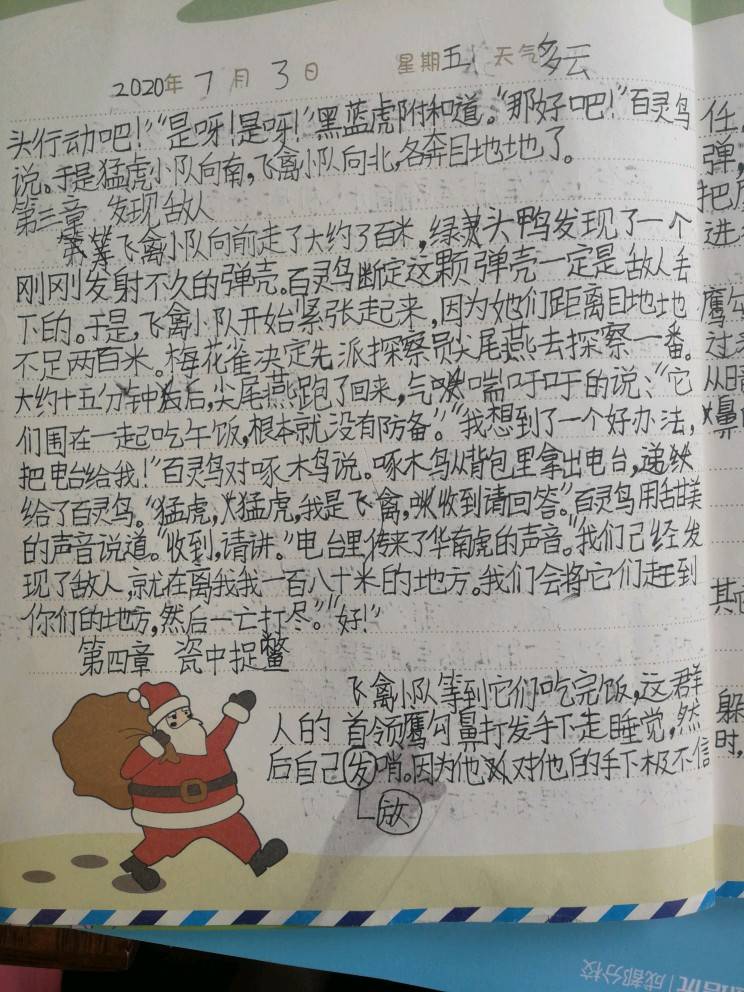 2020年 7月 3日 星期五 天气多云
头行动吧!”“是呀!是呀!”黑蓝虎附和道。“那好吧!”百灵鸟
说。于是猛虎小队向南,飞禽小队向北,各奔目地地了。
第三章 发现敌人
飞禽小队向前走了大约了百米,绿头鸭发现了一个
刚刚发射不久的弹壳。百灵鸟断定这颗弹壳一定是敌人丢
下的。于是,飞禽小队开始紧张起来,因为她们距离目地地
不足两百米。梅花雀决定先派探察员尖尾燕去探察一番。
大约十五分钟后,尖尾燕跑了回来,气喘吁吁的说:“它
们围在一起吃午饭,根本就没有防备。”“我想到了一个好办法,
把电台给我!”百灵鸟对啄木鸟说。啄木鸟从背包里拿出电台,递
给了百灵鸟。“猛虎,猛虎,我是飞禽,收到请回答。”百灵鸟用甜美
的声音说道。“收到,请讲。”电台里传来了华南虎的声音。“我们己经发
现了敌人,就在离我我一百八十米的地方。我们会将它们赶到
你们的地方,然后一亡打尽。”“好!”
第四章 瓷中捉鳖
飞禽小队等到它们吃完饭,这群
人的首领鹰勾鼻打发手下走睡觉,然
后自己发哨。因为他对他的手下极不信
放
任
弹,
把
进
鹰勾
过
从
鼻
其它
躲
时,
成都分校